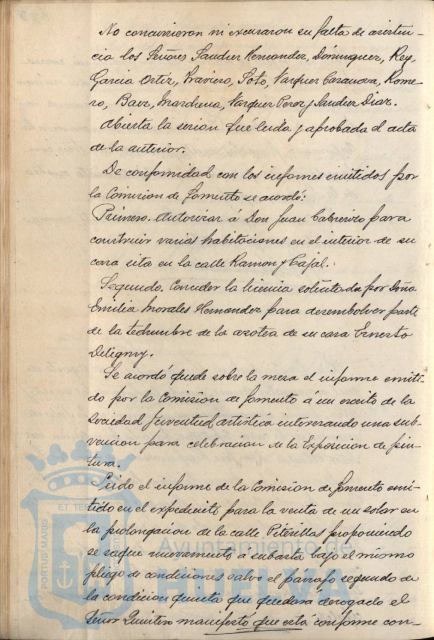 No concurrieron ni excusaron su falta de asisten-
cia los Señores Saudier Hernandez, Dominguez, Rey,
Garcia Ortíz, Traviero, Soto, Vazquez Casanova, Rome-
ro, Baez, Marchena, Vazquez Perez y Saudier Diaz.
Abierta la sesion fué leida y aprobada el acta
de la anterior.
De conformidad con los informes emitidos por
la Comision de Fomento se acordó:
Primero. Autorizar á Don Juan Cabrerizo para
construir varias habitaciones en el interior de su
casa sita en la calle Ramon y Cajal.
Segundo. Conceder la licencia solicitada por Doña
Emilia Morales Hernandez para desembolver parte
de la techumbre de la azotea de su casa Ernesto
Deligny.
Se acordó quede sobre la mesa el informe emiti-
do por la Comision de Fomento á un escrito de la
Sociedad Juventud artística interesando una sub-
vencion para celebracion de la Exposicion de pin-
tura.
Leido el informe de la Comision de Fomento emi-
tido en el expediente para la venta de un solar en
la prolongacion de la calle Piterillas proponiendo
se saque nuevamente á subasta bajo el mismo
pliego de condiciones salvo el párrafo segundo de
la condicion quinta que quedara derogado el
Señor Quintin manifestó que está conforme con-
PORTUS MARIS
ET TE